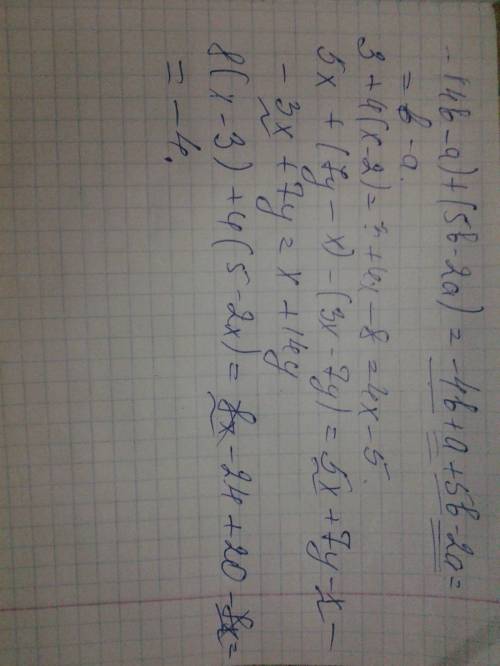 -(4b-a)+(5b-2a)=-4b+a+5b-2a=
=b-a.
3+4(x-2)=3+4x-8=4x-5.
5x+(7y-x)-(3x-7y)=5x+7y-x-
-3x+7y=x+14y
8(x-3)+4(5-2x)=8x-24+20-8x=
=-4.